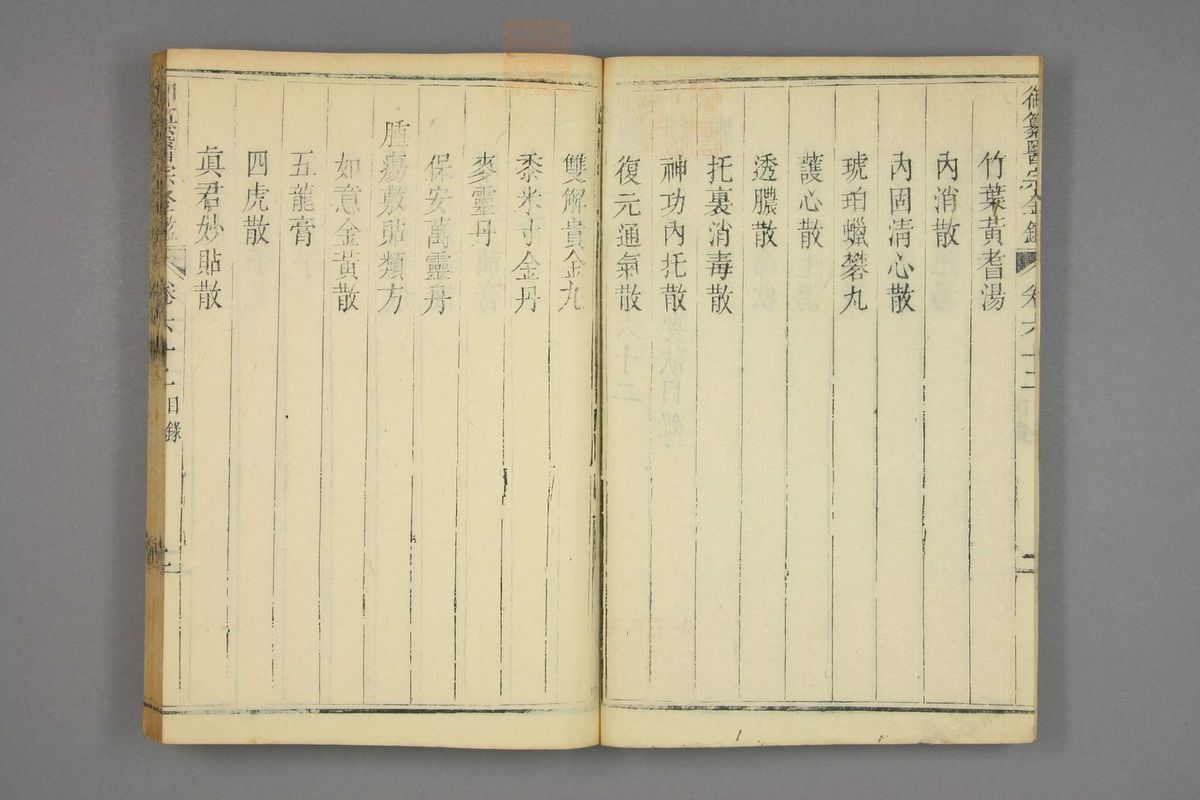 御纂醫宗金鑑 卷六十二
竹葉黃耆湯
內消散
內固清心散
琥珀蠟礬丸
護心散
透膿散
托裏消毒散
神功內托散
復元通氣散
雙解貴金丸
黍米寸金丹
麥靈丹
保安萬靈丹
腫瘍敷貼類方
如意金黃散
五龍膏
四虎散
眞君妙貼散
纂醫宗金鑑 卷六十二目錄